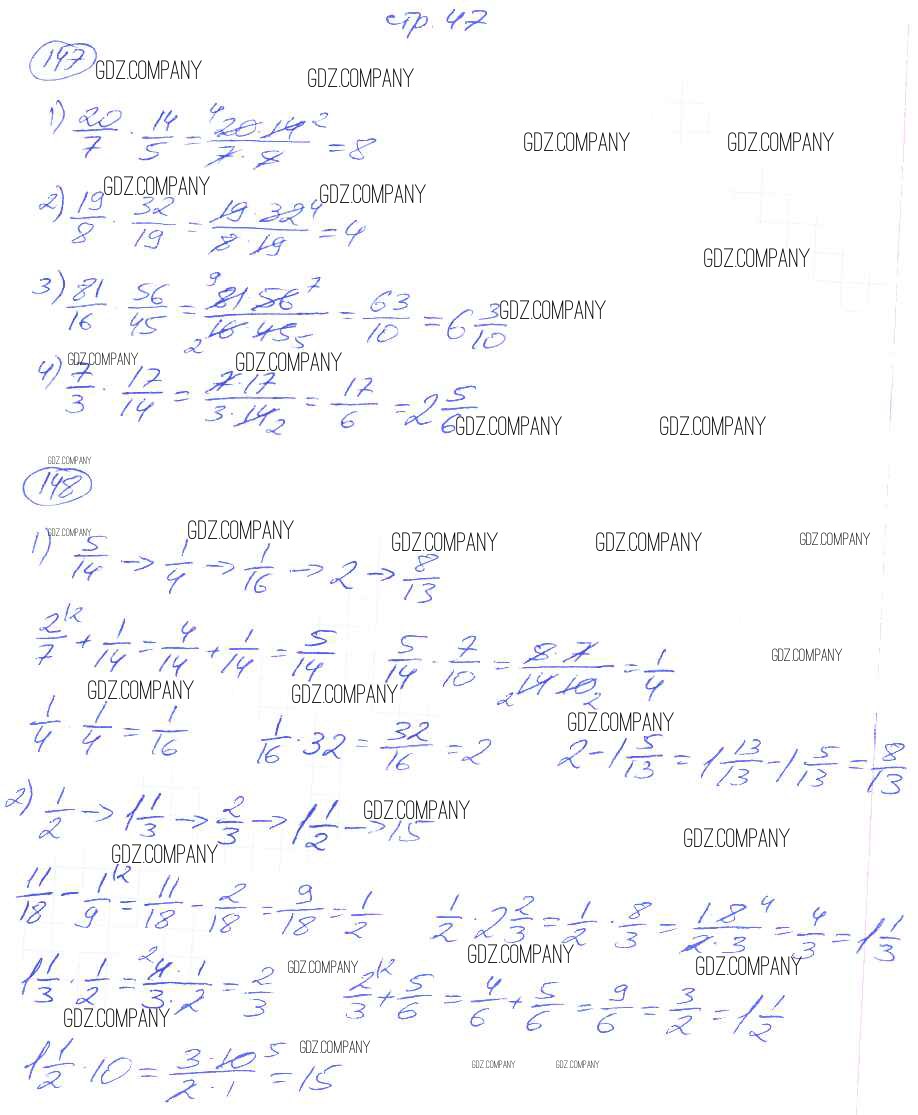 стр. 47
147 GDZ.COMPANY GDZ.COMPANY
1) 20/7 · 14/5 = 4 20·14 2 / 7·5 = 8 GDZ.COMPANY GDZ.COMPANY
GDZ.COMPANY GDZ.COMPANY
2) 19/8 · 32/19 = 19·32 4 / 8·19 = 4
GDZ.COMPANY
3) 81/16 · 56/45 = 9 81 56 7 / 2 16 45 5 = 63/10 = 6 3/10 GDZ.COMPANY
GDZ.COMPANY GDZ.COMPANY
4) 7/3 · 17/14 = 7·17 / 3·14 2 = 17/6 = 2 5/6 GDZ.COMPANY GDZ.COMPANY
GDZ.COMPANY
148
GDZ.COMPANY GDZ.COMPANY GDZ.COMPANY GDZ.COMPANY GDZ.COMPANY
1) 5/14 → 1/4 → 1/16 → 2 → 8/13
2/7 \2 + 1/14 = 4/14 + 1/14 = 5/14 5/14 · 7/10 = 5·7 / 2 14 10 2 = 1/4 GDZ.COMPANY
GDZ.COMPANY GDZ.COMPANY GDZ.COMPANY
1/4 · 1/4 = 1/16 1/16 · 32 = 32/16 = 2 2 - 1 5/13 = 1 13/13 - 1 5/13 = 8/13
2) 1/2 → 1 1/3 → 2/3 → 1 1/2 → 15 GDZ.COMPANY
GDZ.COMPANY GDZ.COMPANY
11/18 - 1/9 \2 = 11/18 - 2/18 = 9/18 = 1/2 1/2 · 2 2/3 = 1/2 · 8/3 = 1 8 4 / 2·3 = 4/3 = 1 1/3
GDZ.COMPANY GDZ.COMPANY GDZ.COMPANY
1 1/3 · 1/2 = 2 4·1 / 3·2 = 2/3 2/3 \2 + 5/6 = 4/6 + 5/6 = 9/6 = 3/2 = 1 1/2
GDZ.COMPANY
1 1/2 · 10 = 3·10 5 / 2·1 = 15 GDZ.COMPANY GDZ.COMPANY GDZ.COMPANY